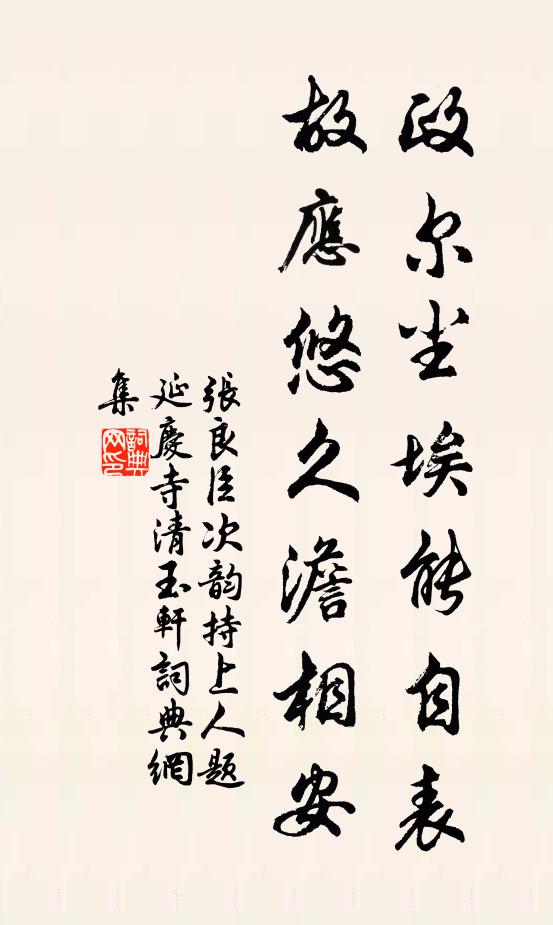 政尔尘埃能自表
故應悠久澹相安
張良臣次韵持上人題
延慶寺清玉軒詞典網
集
詞典
网印